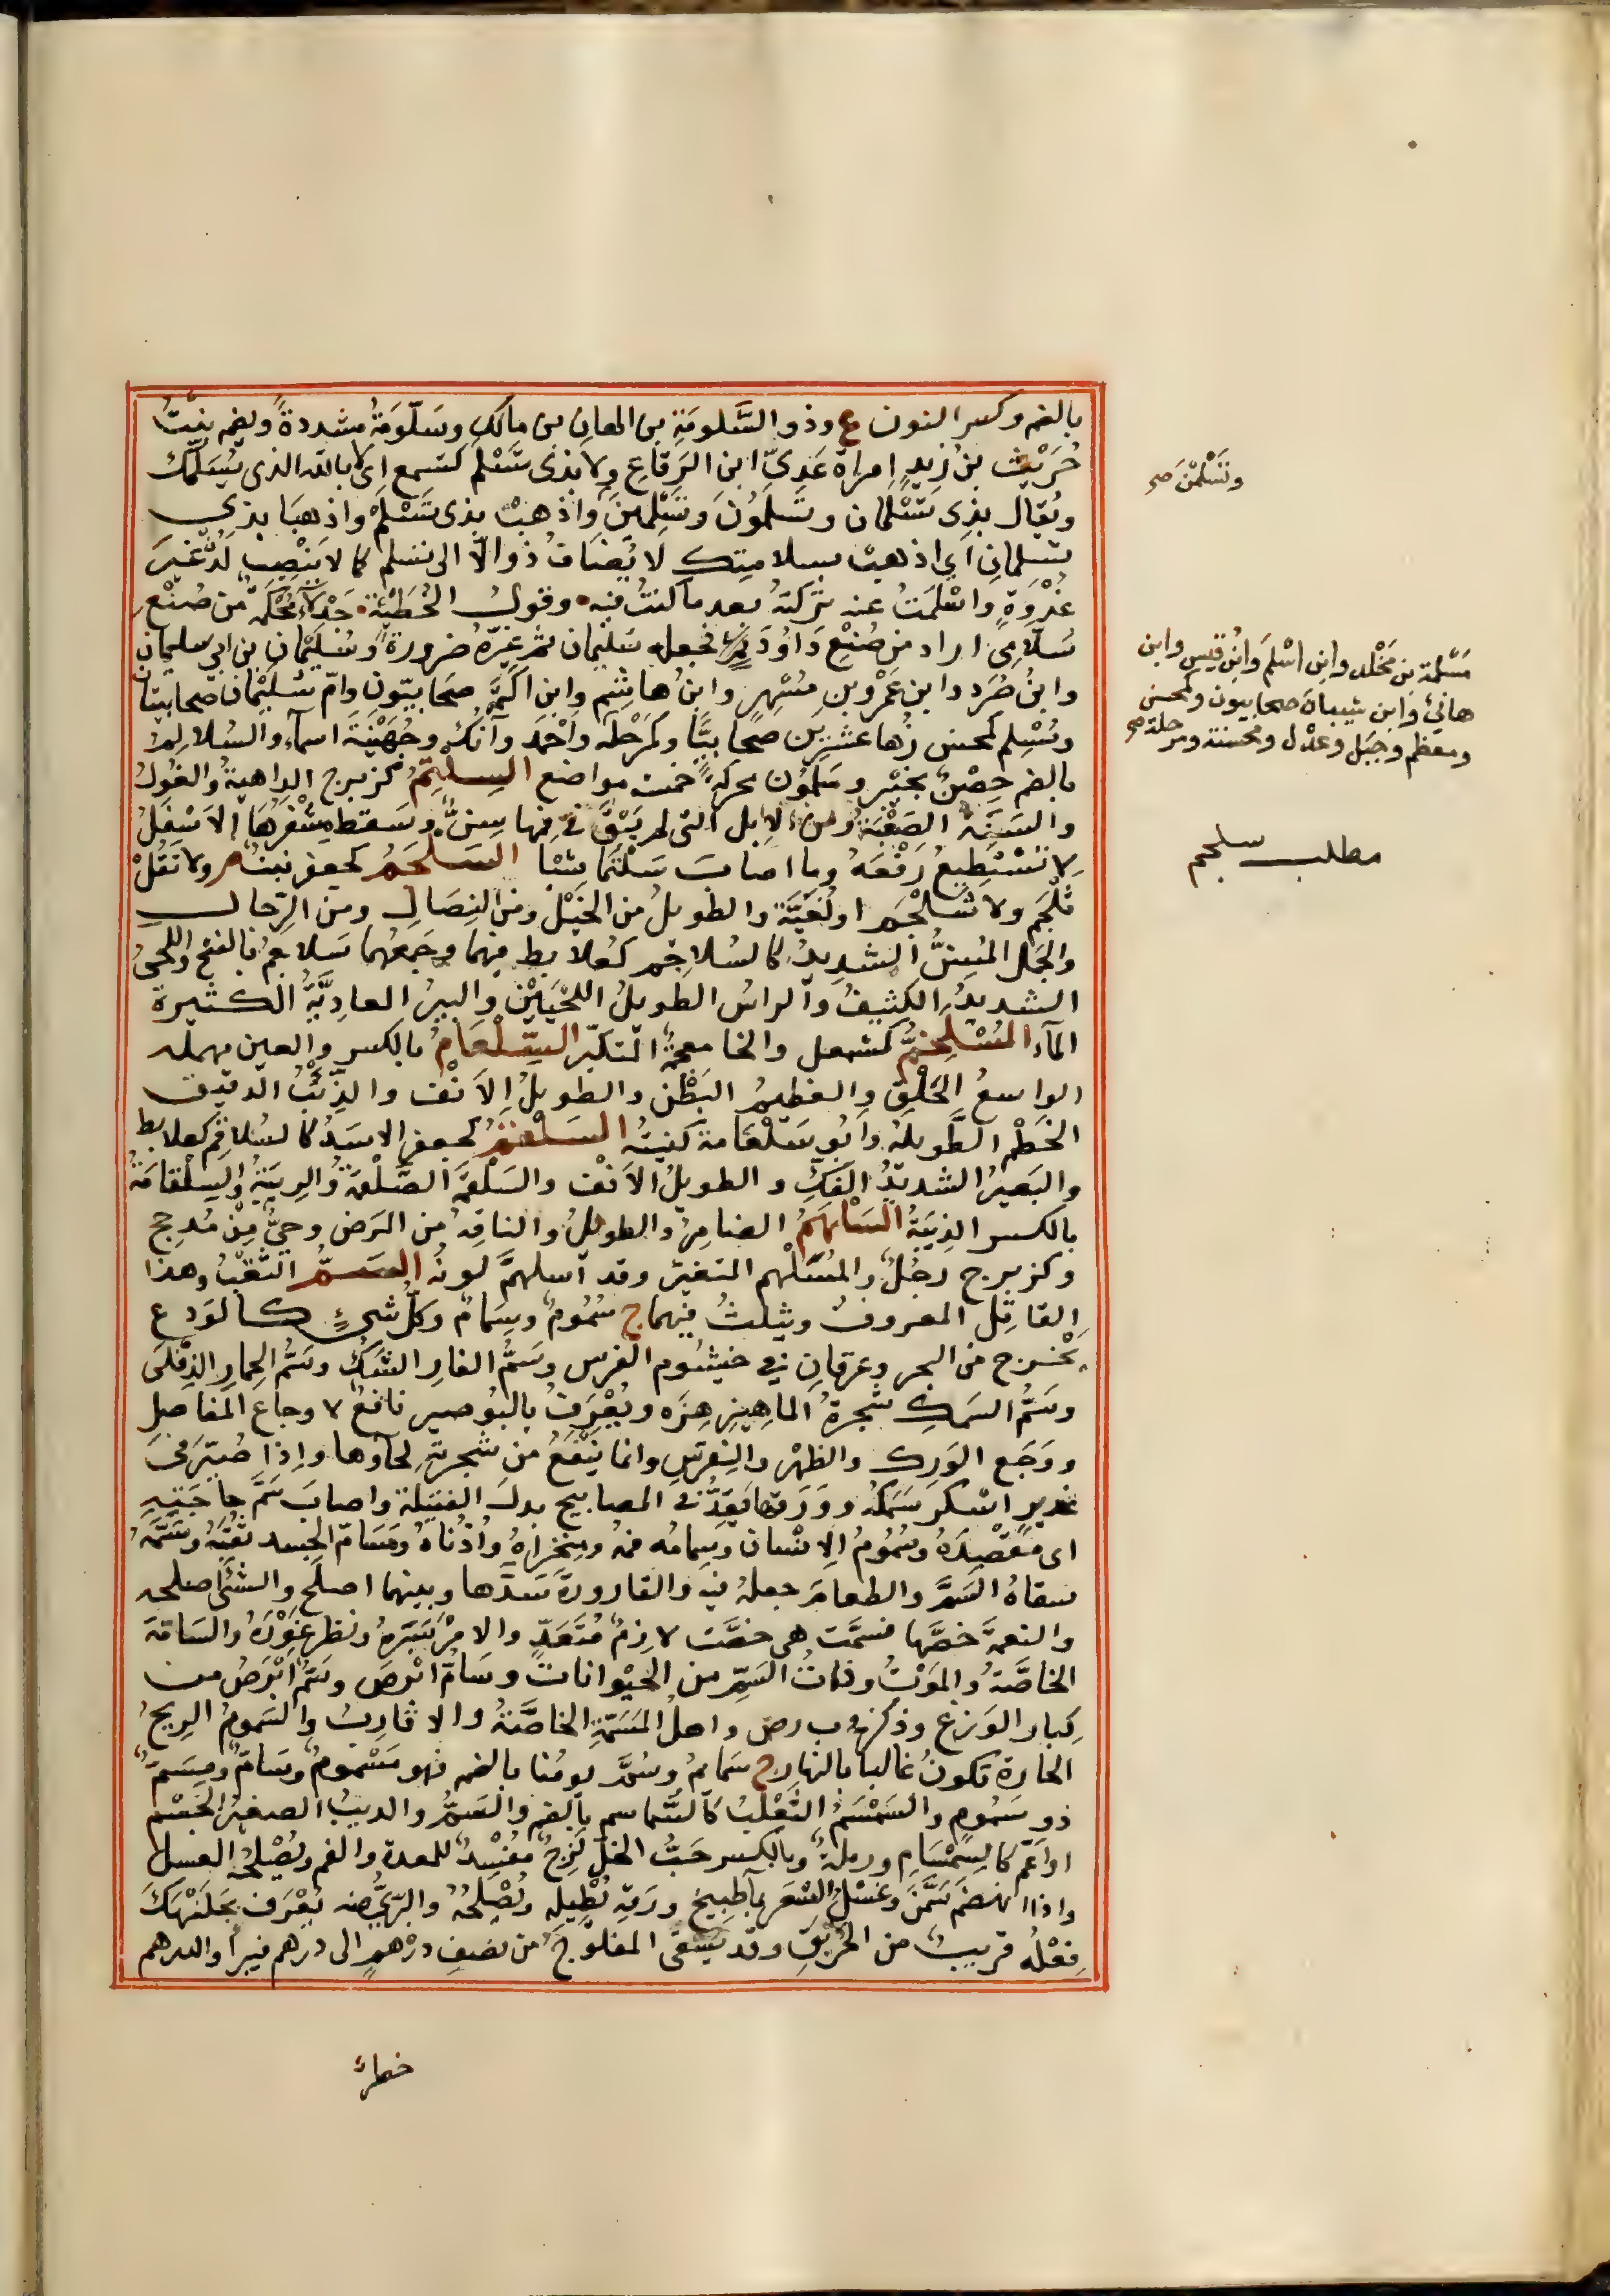 بالضم وكسر النون ع وذو السَّلومَةِ بن المعان بن مالكٍ وسَلّومَةُ مشددةً ويضم بنتُ
حُرَيْث بن زيدٍ امراة عَدِيّ ابن الرِقاعِ ولا بذى تَسْلَم كتسمع اى لا بالله الذى يُسَلّمك
ويُقال بذِى تَسْلَمان وتَسْلَمُونَ وتَسْلَمِينَ واذهبْ بذى تَسْلَمْ واذهبَا بذى
تسلمانِ اى اذهبْ بسلامتك لا يُضافُ ذو الّا الى تسلم كما لا يَنْصِبُ لَدُنْ غيرَ
غُدْوَةٍ واسْلَمَتُ عنه تركتهُ بعد ما كنتُ فيه وقول الحُطَيْئَة جَدْلاءُ مُحْكَمَةٌ من صُنْعِ
سَلّامِ اراد من صُنْعِ دَاوُدَ فجعله سُليمان ثم غيّرهُ ضرورةً وسُلَيْمان بن ابى سليمان
وابنُ صُرَد وابن عَمْرو بن مُسْهِرٍ وابنُ هاشِم وابن اكَيْمَة صحابيّون وامّ سُلَيْمان صحابيتان
ومُسْلِم كمحسن زُهاء عشرين صحابيًّا وكمَرْحَلَه واَحْمَد وآنُك وجُهَيْنَة اسماء والسُلالِمُ
بالضم حِصْن بخيْبر وسَلَمُون محركةً خمسة مواضع السِلتِمُ كزبرج الداهية والغُول
والسَنَة الصَعْبَة ومن الابل التى لم يَبْقَ فى فمها سِنٌّ وسَقط مِشْفَرُهَا الاَسْفَلُ
لا تَسْتَطيعُ رَفْعَهُ وما اصابَ سَلْتَمًا شيئا السَلْجَمُ كجعفر نبتٌ م ولا تَقُلْ
ثَلْجَم ولا شَلْجَم او لُغَيَّة والطويلُ من الخَيْل ومن النِصَالِ ومن الرِّجال
والجَمل المُسِنُّ الشديدُ كالسُلاجم كعُلابط فيهما وجَمعُهما سَلاجِمُ بالفتح واللحىُ
الشديدُ الكثِيفُ والراس الطويلُ اللَحْيَيْن والبيرُ العادِيَّةُ الكثيرة
المآء المُسْلَخِمُّ كمشمعل والخا معجمةٌ المتكبّر السِّلْعَامُ بالكسر والعين مهمله
الواسعُ الحَلْقِ والعظيم البَطْن والطويلُ الاَنْف والذِّئْبُ الدقيق
الخَطْم الطَّويلُهُ وابُو سَلْعَامة كنيتُه السَلْغَمُ كجعفر الاسَدُ كالسُلاقم كعلابط
والبَعيرُ الشديدُ الفَكِّ والطويلُ الاَنْف والسَلْقَمَة الصَلْقَمَةُ والرِيبَةُ والسِلْقَامَةُ
بالكسر الذِيبَةُ السَلْهَمُ الضامِرُ والطويلُ والناقِهُ من المَرَض وحىٌّ مِنْ مَذحِج
وكزبرج رجُلٌ والمُسْلَهِمّ المتغيّر وقد اسلهمَّ لونُه السَمُّ الثَقْبُ وهذا
القاتِل المعروفُ ويثلثُ فيهما ج سُمُومٌ وسِمَامٌ وكلُّ شىءٍ كالوَدع
يُخْرج من البحر وعِرْقانِ فى خيشوم الفرس وسَمُّ الفار الشَكُّ وسَمُّ الحمارِ الدِفْلَى
وسَمُّ السمك شجرةُ الماهِيزهِرَه ويُعْرَفُ بالبُوصير نافعٌ لاوجاع المفاصل
ووَجَع الوَرِك والظهْر والنِقرسِ وانما يَنْفَعُ من شجرته لحاؤها واذا صُيّرَ فى
غديرٍ اسْكَرَ سَمَكَهُ ووَرَقها يَقِدُ فى المصابيح بدلَ الفتيلة واصابَ سَمَّ حاجَتِهِ
اى مَقْصِدَهُ وسُمُومُ الاِنسان وسِمامُه فمُه ومِنْخراهُ واُذُناهُ ومَسَامّ الجسد ثُقَبُهُ وسَمَّهُ
سقاهُ السَمَّ والطعامَ جعلهُ فيه والقارورةَ سَدَّها وبينهما اصلح والشئَ اصلحه
والنعمةُ خَصَّها فسَمَّت هى خصَّت لازِمٌ مُتَعَدٍّ والامْرَ سَبَرَهُ ونظر غَوْرَهُ والسَامَّة
الخاصَّةُ والمَوْتُ وذاتُ السَمِّ من الحيْوانات وسَامُّ اَبْرَصَ وسَمُّ اَبْرَصُ من
كِبار الوَزغ وذكر فى ب ر ص واهلُ المَسَمَّةِ الخاصَّةُ والاقاربُ والسَمومُ الريحُ
الحارة تكونُ غالبا بالنهار ج سَمايمُ وسُمَّ يومُنا بالضم فهو مَسْمومٌ وسَامٌّ ومِسَمٌّ
ذو سَمُومٍ والسَمْسَمُ الثَعْلَبُ كالسُماسم بالضم والسَمُّ والذيبُ الصغيرُ الجسْم
او اَعَمُّ كالسِمْسَامِ ورملةٌ وبالكسر حَبُّ الحَلّ لَزِجٌ مفسِدٌ للمعدة والفم ويُصْلِحُه العسل
واذا انهضمَ سَمَّنَ وغَسْلُ الشعَر بمآء طبيخ ورَقِهِ يُطِيله ويُصْلِحُهُ والبَرّىُّ منه يُعْرَف بجَلْبَهْنَك
فِعْلُهُ قريبٌ من الخَرْبَقِ وقد يَسْقى المفلوجَ من نصفِ درْهمٍ الى درهم فيبرأ والدرهم
خطرٌ
وتَسْلَمْنَ صح
مَسْلَمة بن مَخْلد وابن اسْلمَ وابُن قيس وابن
هانئ وابن شيباة صحابيون وكمحسن
ومعظم وجَبَل وعدْل ومحسنة ومرحلة صح
مطلب سلجم